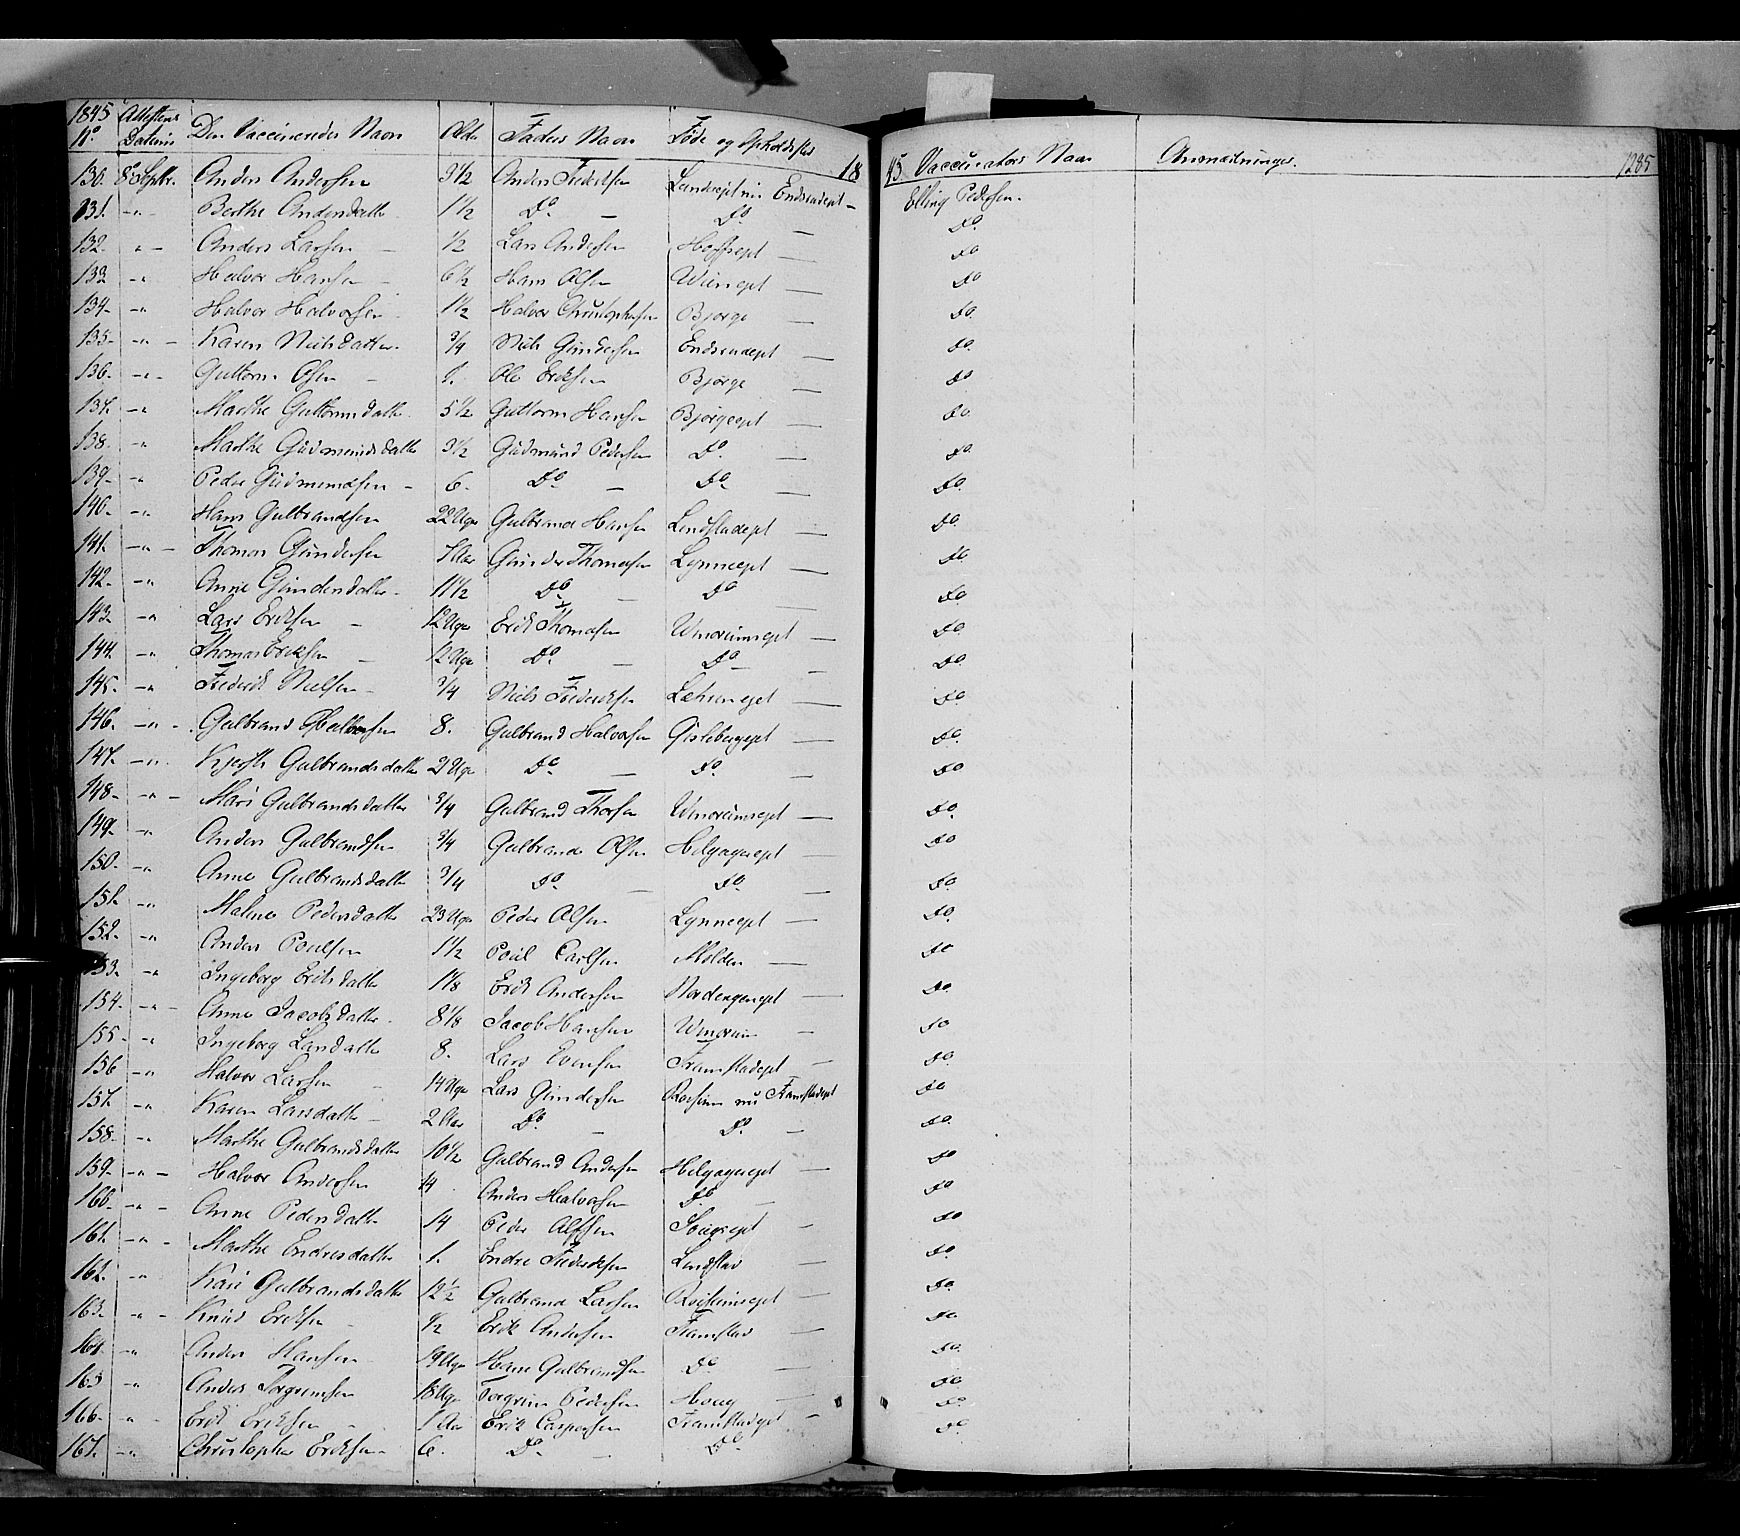 1845 Attestens 1845
No Datum Den Vaccineredes Navn Alder Faders Navn Føde og Opholdssted Vaccinators Navn Anmærkninger. 1285
130. 8de Septbr. Anders Andersen 3 1/2 Anders Frederiksen Endsrudept Elling Pedersen.
131. -"- Berthe Andersdatter 1 1/2 Do. Do. Do.
132. -"- Anders Larsen 1/2 Lars Andersen Do
133 -"- Halvor Hansen 6 1/2 Hans Olsen Do
134. -"- Halvor Halvorsen 1 1/2 Halvor Christophersen Bjørge Do.
135. -"- Karen Nielsdatter 3/4 Niels Gundersen Endsrudept Do.
136. -"- Guttorm Olsen 9. Ole Eriksen Bjørge Do
137. -"- Marthe Guttormsdatter 5 1/2 Guttorm Hansen Bjørgeept Do.
138. -"- Marthe Gudmundsdatter 3 1/2 Gudmund Pedersen Do. Do.
139. -"- Peder Gudmundsen 6. Do. Do. Do.
140. -"- Hans Gulbrandsen 22 Uger Gulbrand Hansen Lindstadept Do.
141. -"- Thomas Gundersen 7 Aar Gunder Thomesen Lynneept Do.
142. -"- Anne Gundersdatter 11 1/2 Do Do Do.
143. -"- Lars Eriksen 12 Uger Erik Thomesen Do.
144. -"- Thomas Eriksen 12 Uger Do. Do Do.
145. -"- Frederik Nielsen 3/4 Niels Frederiksen Do
146. -"- Gulbrand Gulbrandsen 8. Gulbrand Halvorsen Gislebergept Do.
147. -"- Kjersti Gulbrandsdatter 21 Uger Do. Do. Do
148. -"- Mari Gulbrandsdatter 3/4 Gulbrand Thorsen Do.
149. -"- Anders Gulbrandsen 3/4 Gulbrand Olsen Helgagereept Do
150. -"- Anne Gulbrandsdatter 3/4 Do. Do. Do.
151. -"- Malene Pedersdatter 23 Uger Peder Olsen Lynneept Do.
152. -"- Anders Poulsen 1 1/2 Poul Carlsen Molden Do
153. -"- Ingeborg Eriksdatter 1 1/8 Erik Andersen Nordengenept Do.
154. -"- Anne Jacobsdatter 8 1/8 Jacob Hansen Do
155. -"- Ingeborg Larsdatter 8. Lars Evensen Framstadept Do.
156 -"- Halvor Larsen 14 Uger Lars Gundersen nu Framstadept Do
157. -"- Karen Larsdatter 2 Aar Do. Do. Do.
158. -"- Marthe Gulbrandsdatter 10 1/2 Gulbrand Andersen Helgagereept Do
159. -"- Halvor Andersen 14 Anders Halvorsen Do Do
160. -"- Anne Pedersdatter 14 Peder Do
161. -"- Marthe Endresdatter 1. Endre Frederiksen Lindstad Do.
162. -"- Kari Gulbrandsdatter 12 1/2 Gulbrand Larsen Do.
163. -"- Knud Eriksen 1/2 Erik Andersen Framstad Do
164 -"- Anders Hansen 19 Uger Hans Gulbrandsen Do Do
165 -"- Anders Torgrimsen 18 Uger Torgrim Pedersen Houg Do
166. -"- Erik Eriksen 1 Aar Erik Caspersen Framstadept Do
167. -"- Christopher Eriksen 6. Do. Do. Do.